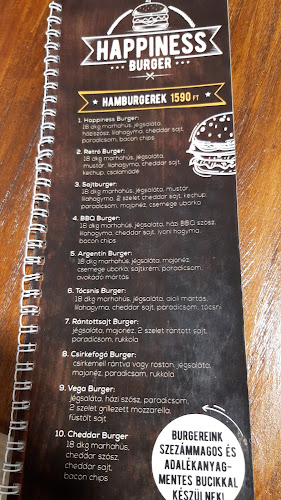 HAPPINESS
BURGER
HAMBURGEREK 1590 FT
1. Happiness Burger:
18 dkg marhahús, jégsaláta,
háziszósz, lilahagyma, cheddar sajt,
paradicsom, bacon chips
2. Retró Burger:
18 dkg marhahús, jégsaláta,
mustár, lilahagyma, cheddar sajt,
ketchup, csalamádé
3. Sajtburger:
18 dkg marhahús, jégsaláta, mustár,
lilahagyma, 2 szelet cheddar sajt, ketchup,
paradicsom, majonéz, csemege uborka
4. BBQ Burger:
18 dkg marhahús, jégsaláta, házi BBQ szósz,
lilahagyma, cheddar sajt, lyoni hagyma,
bacon chips
5. Argentin Burger:
18 dkg marhahús, jégsaláta, majonéz,
csemege uborka, sajtkrém, paradicsom,
avokádó mártás
6. Tócsnis Burger:
18 dkg marhahús, jégsaláta, aioli mártás,
lilahagyma, cheddar sajt, paradicsom, tócsni
7. Rántottsajt Burger:
jégsaláta, majonéz, 2 szelet rántott sajt,
paradicsom, rukkola
8. Csirkefogó Burger:
csirkemell rántva vagy roston, jégsaláta,
majonéz, paradicsom, rukkola
9. Vega Burger:
jégsaláta, házi szósz, paradicsom,
2 szelet grillezett mozzarella,
füstölt sajt
10. Cheddar Burger
18 dkg marhahús,
cheddar szósz,
cheddar sajt,
bacon chips
BURGEREINK
SZEZÁMMAGOS ÉS
ADALÉKANYAG-
MENTES BUCIKKAL
KÉSZÜLNEK!